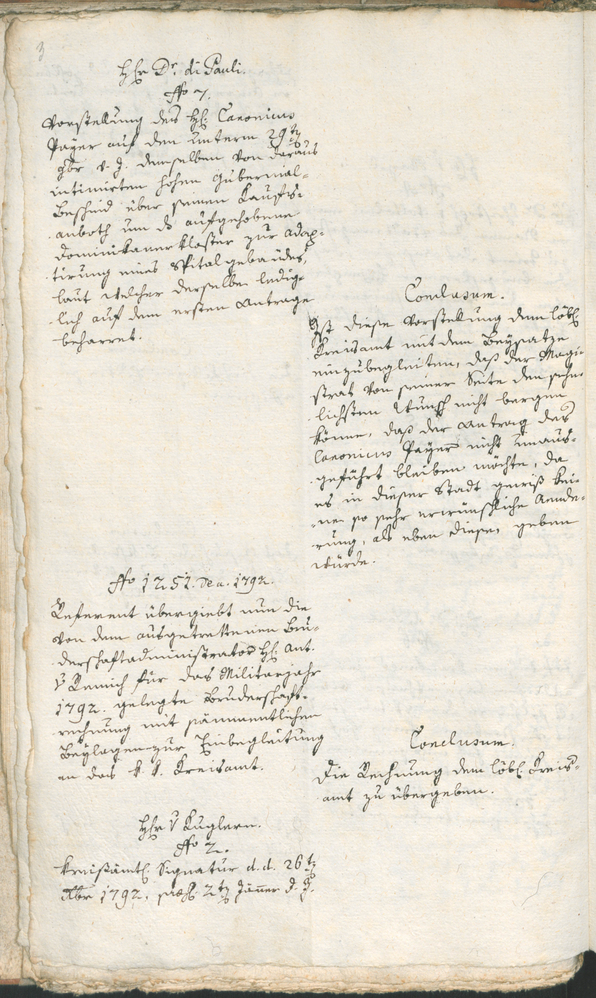 3
Hr Dr. di Pauli.
No 7.
Vorstellung des H. Canonicus
Payer auf den unterm 29t
v. J. demselben von daraus
intimirten hohen Gubernial-
Bescheid über seinen Kaufs-
anboth um das aufgehobene
Dominikanerkloster zur adap-
tirung eines Spitalgebaudes,
laut welcher derselbe ledig-
lich auf dem ersten Antrage
beharret.
Conclusum.
Ist diese Vorstellung dem löbl.
Kreisamt mit dem Beysatze
einzubegleiten, daß der Magi-
strat von seiner Seite den sehn-
lichsten Wunsch nicht bergen
könne, daß der Antrag des
Canonicus Payer nicht unaus-
geführt bleiben möchte, da
es in dieser Stadt gewiß kei-
ne so sehr erwünschliche Aende-
rung, als eben diese, geben
würde.
No 1251. de a. 1792.
Referent übergiebt nun die
von dem ausgetrettenen Bru-
derschaftadministrator H. Ant.
v Remich für das Militarjahr
1792. gelegte Bruderschaft-
rechnung mit sämmentlichen
Beylagen zur Einbegleitung
an das k. k. Kreisamt.
Conclusum.
Die Rechnung dem löbl. Kreis-
amt zu übergeben.
Hr v Kuglern.
No 2.
Kreisämtl. Signatur d. d. 26t
Xbr 1792, 2t Jänner d. J.